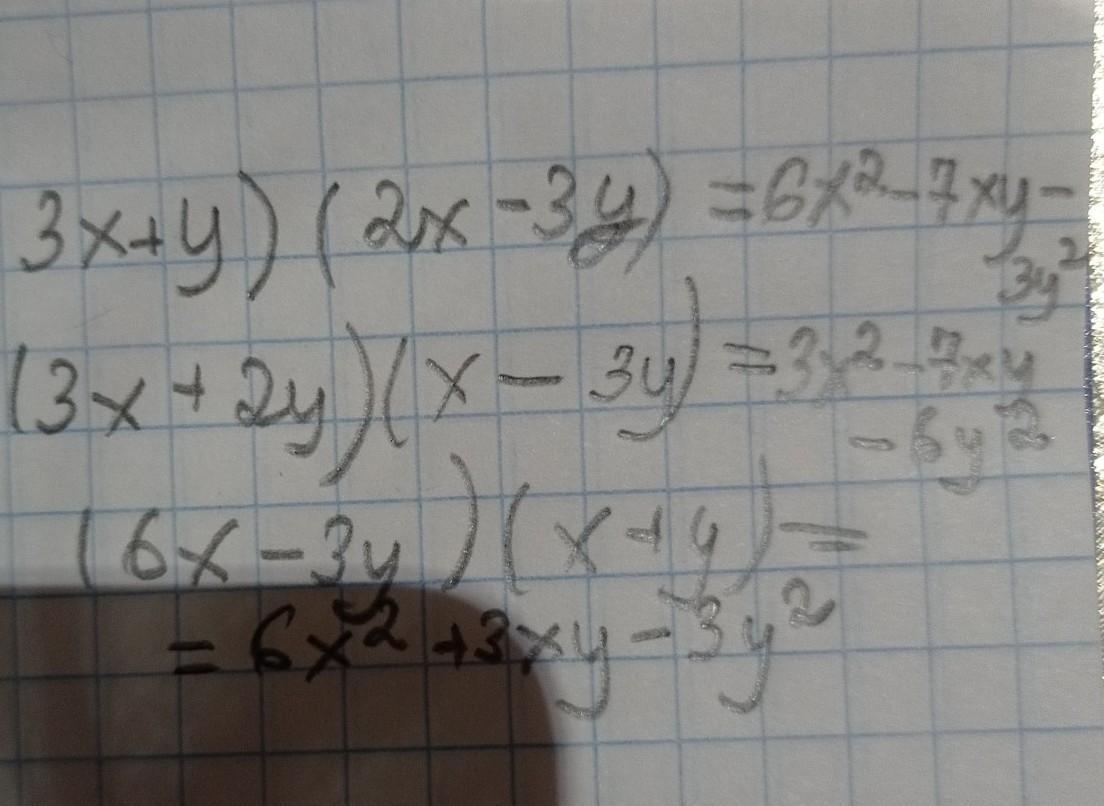 3x+y)(2x-3y)=6x²-7xy-
3y²
(3x+2y)(x-3y)=3x²-7xy
-6y²
(6x-3y)(x+y)=
=6x²+3xy-3y²